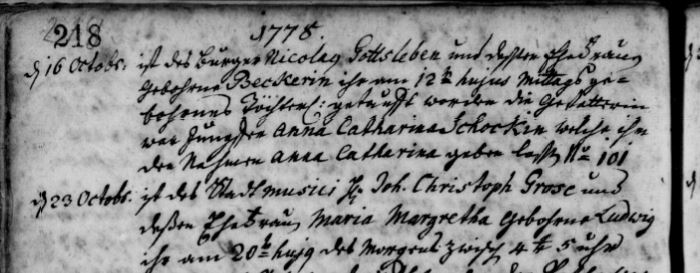 218 1778.
d 16 Octobs. ist des Burger Nicolay Gottsleben und deßen Ehefrauen
gebohrne Beckerin ihr am 12ten hujus Mittags ge-
bohrnes Töchterl: getaufft worden die Gevatterin
war Jungfer Anna Catharina Schockin welche ihm
den Nahmen Anna Catharina geben laßen No 101
d 23 Octobs. ist des Stadt musici H. Joh. Christoph Grose und
deßen Ehefrau Maria Margretha gebohrne Ludwig
ihr am 20ten hujq des Morgens zwisch 4 & 5 uhr